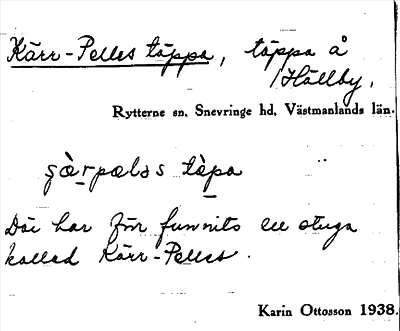 Kärr-Pelles täppa, täppa å
Hällby,
Rytterne sn. Snevringe hd. Västmanlands län.
täpa
Där har förr funnits en stuga
kallad Kärr-Pelles.
Karin Ottosson 1938.